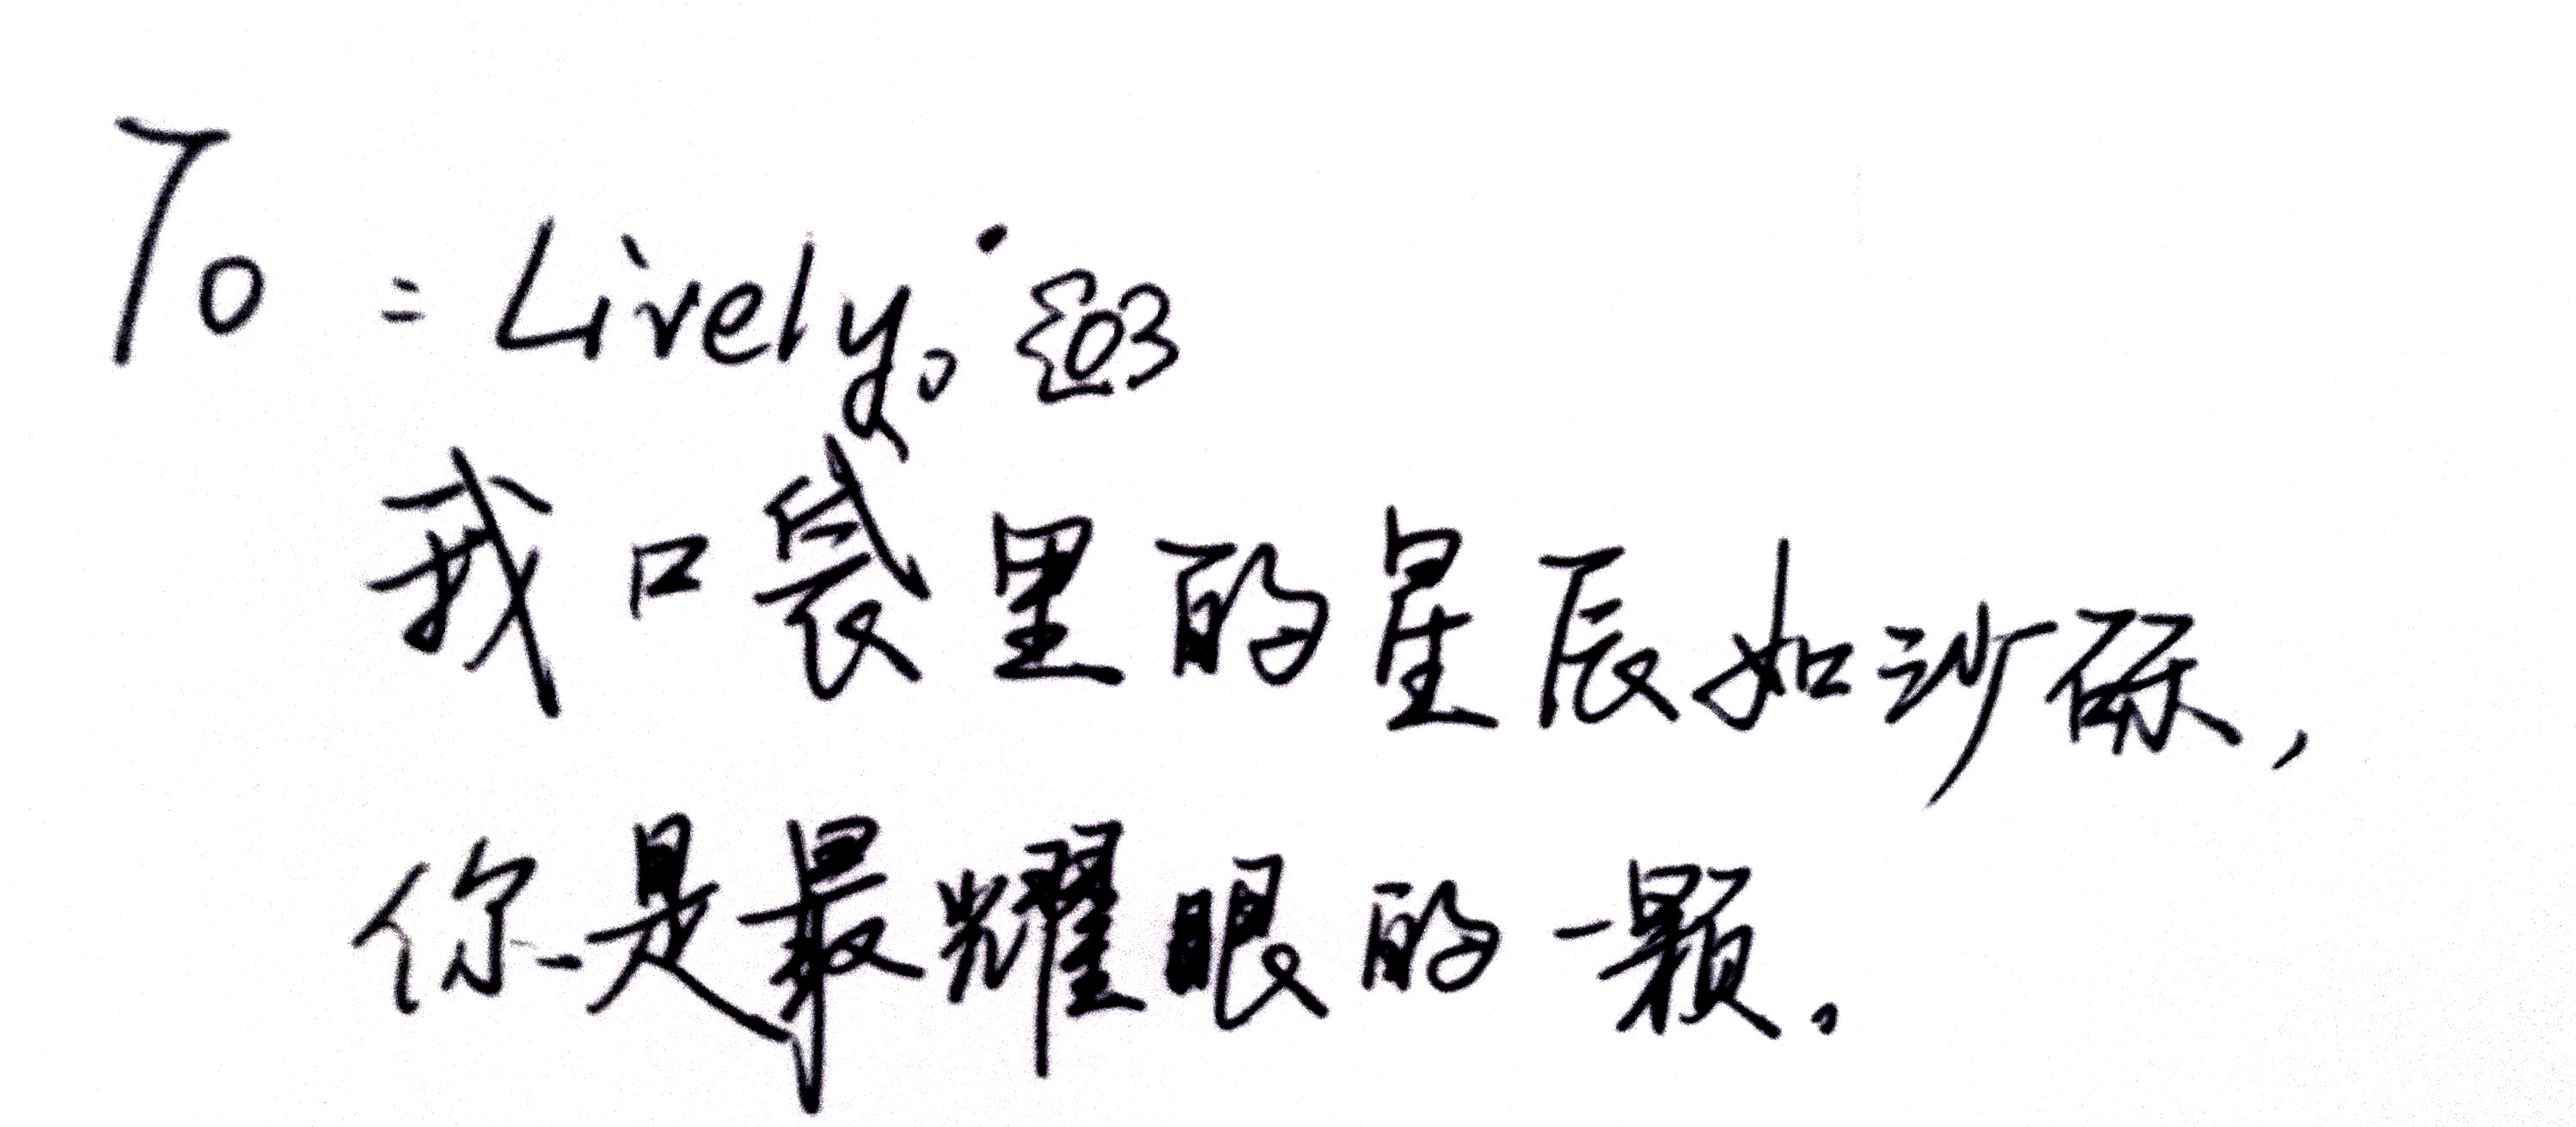 To: Lively。
我口袋里的星辰如沙砾,
你是最耀眼的一颗。